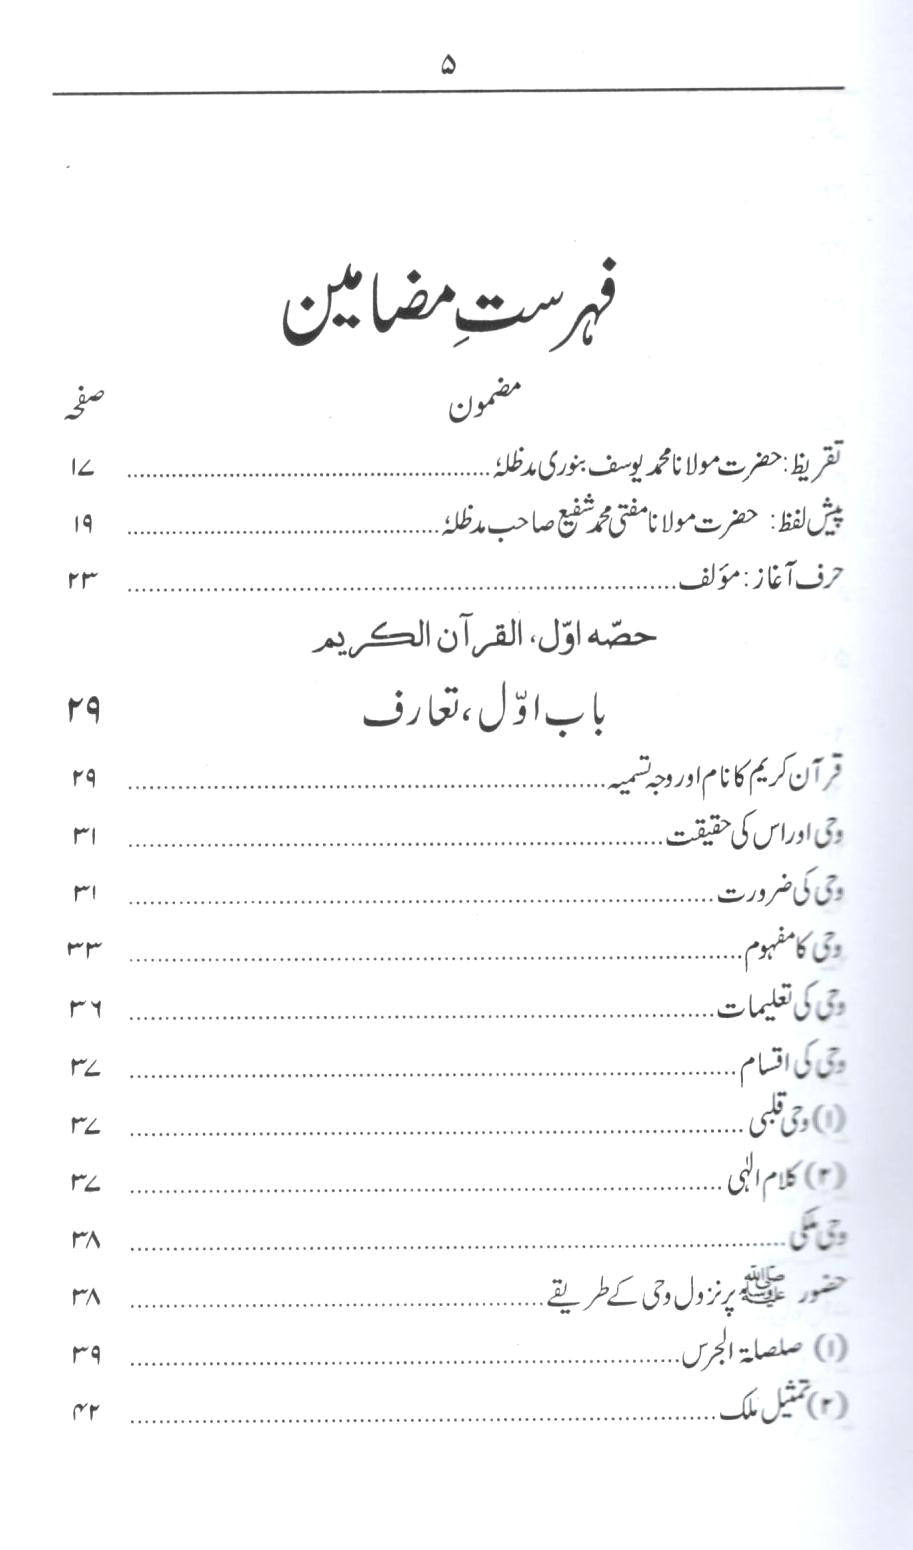 ۵
فہرستِ مضامین
مضمون صفحہ
تقریظ: حضرت مولانا محمد یوسف بنوری مدظلہٗ ۱۷
پیش لفظ: حضرت مولانا مفتی محمد شفیع صاحب مدظلہٗ ۱۹
حرف آغاز: مؤلف ۲۳
حصّہ اوّل، القرآن الکریم
باب اوّل، تعارف ۲۹
قرآن کریم کا نام اور وجہ تسمیہ ۲۹
وحی اور اس کی حقیقت ۳۱
وحی کی ضرورت ۳۱
وحی کا مفہوم ۳۳
وحی کی تعلیمات ۳۶
وحی کی اقسام ۳۷
(۱) وحی قلبی ۳۷
(۲) کلام الٰہی ۳۷
وحی ملکی ۳۸
حضور ﷺ پر نزول وحی کے طریقے ۳۸
(۱) صلصلۃ الجرس ۳۹
(۲) تمثیل ملک ۴۲